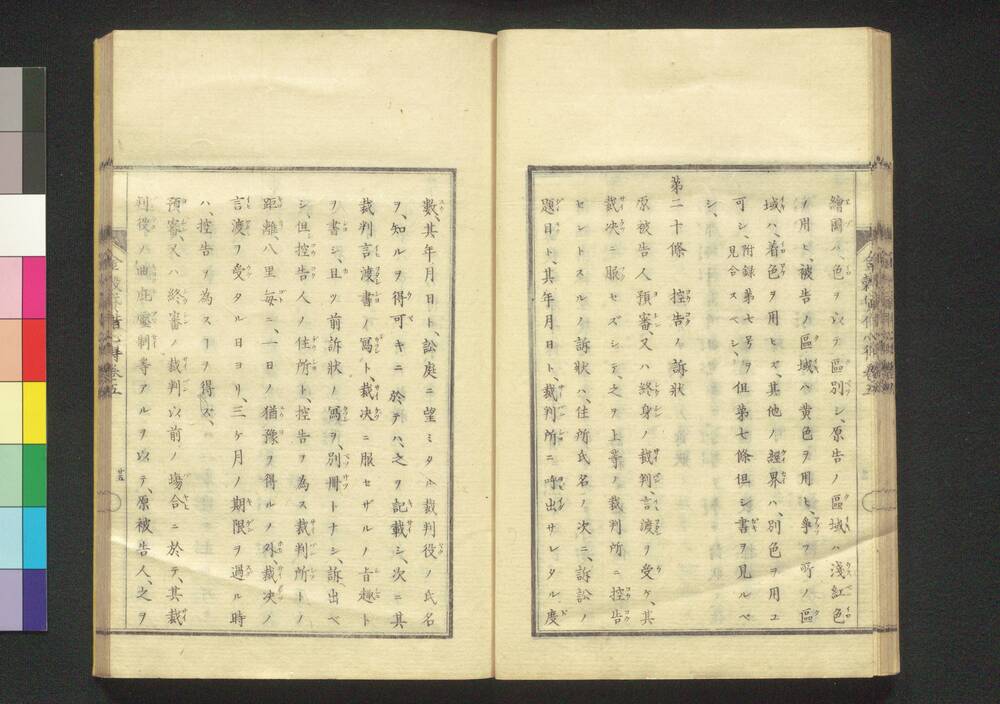 繪圖ハ、色ヲ以テ區別シ、原告ノ區域ハ淺紅色
ノ用ヒ、被告ノ區域ハ黄色ヲ用ヒ、爭フ所ノ區
域ハ、着色ヲ用ヒズ、其他ノ經界ハ、別色ヲ用ユ
可シ、附録第七号ヲ見合スベシ、但第七條但シ書ヲ見ルベ
シ、
第二十條 控告ノ訴狀
原被告人預審、又ハ終身ノ裁判、言渡ヲ受ケ、其
裁決ニ服セズシテ之ヲ上等ノ裁判所ニ控告
セントスルノ訴狀ハ、住所氏名ノ次ニ、訴訟ノ
題目ト、其年月日ト、裁判所ニ呼出サレタル度
數、其年月日ト、訟庭ニ望ミタル裁判役ノ氏名
ヲ、知ルヲ得可キニ於テハ、之ヲ記載シ、次ニ其
裁判言渡書ノ寫ト、裁决ニ服セザルノ旨趣ト
ヲ書シ、且ツ前訴狀ノ寫ヲ、別冊トナシ、訴出ベ
シ、但控告人ノ住所ト、控告ヲ為ス裁判所トノ
距離八里毎ニ、一日ノ猶豫ヲ得ルノ外、裁决ノ
言渡ヲ受タル日ヨリ、三ケ月ノ期限ヲ過ル時
ハ、控告ヲ為スヿヲ得ズ、
預審、又ハ終審ノ裁判以前ノ塲合ニ於テ、其裁
判役ハ曲庇壓制等アルヲ以テ、原被告人、之ヲ